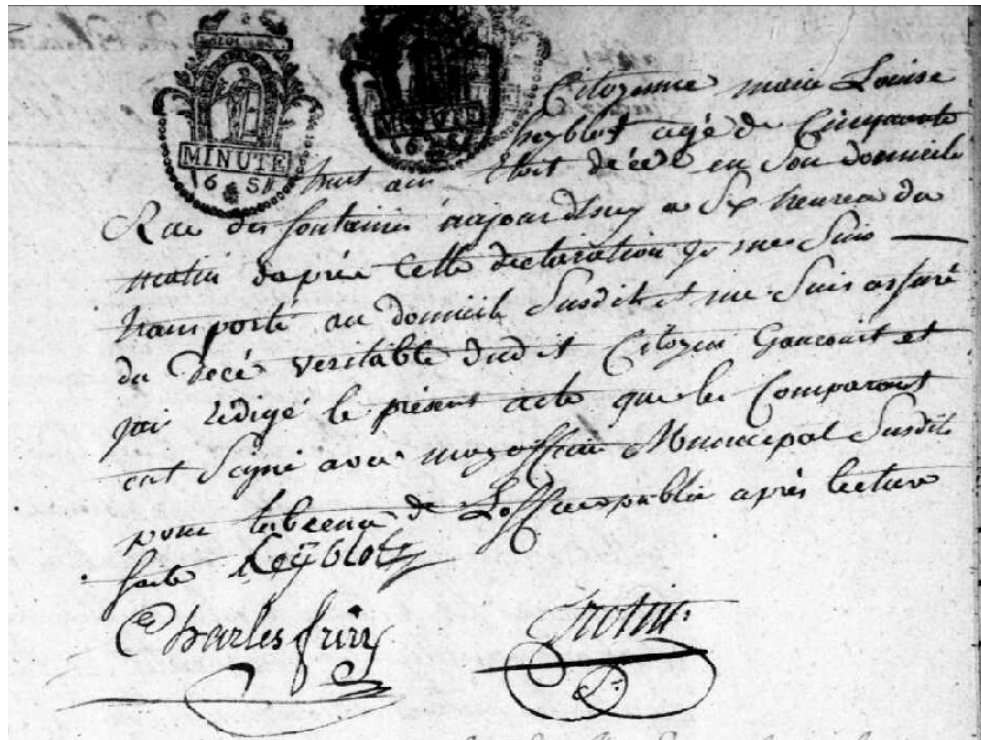 MINUTE
16 51
MINUTE
Citoyenne marie Louise
heyblot agé de Cinquante
huit ans Etoit décédé en son domicile
Rue des fontaines aujourdhuy a Six heures du
matin daprès Cette declaration je me Suis
transporté au domicile Susdit et me Suis assuré
du decé veritable dudit Citoyen Gaucourt et
jai rédigé le présent acte que les Comparants
ont Signé avec moy officier Municipal Susdit
pour labcence de Lofficier public après lecture
faite Heÿblot
Charles